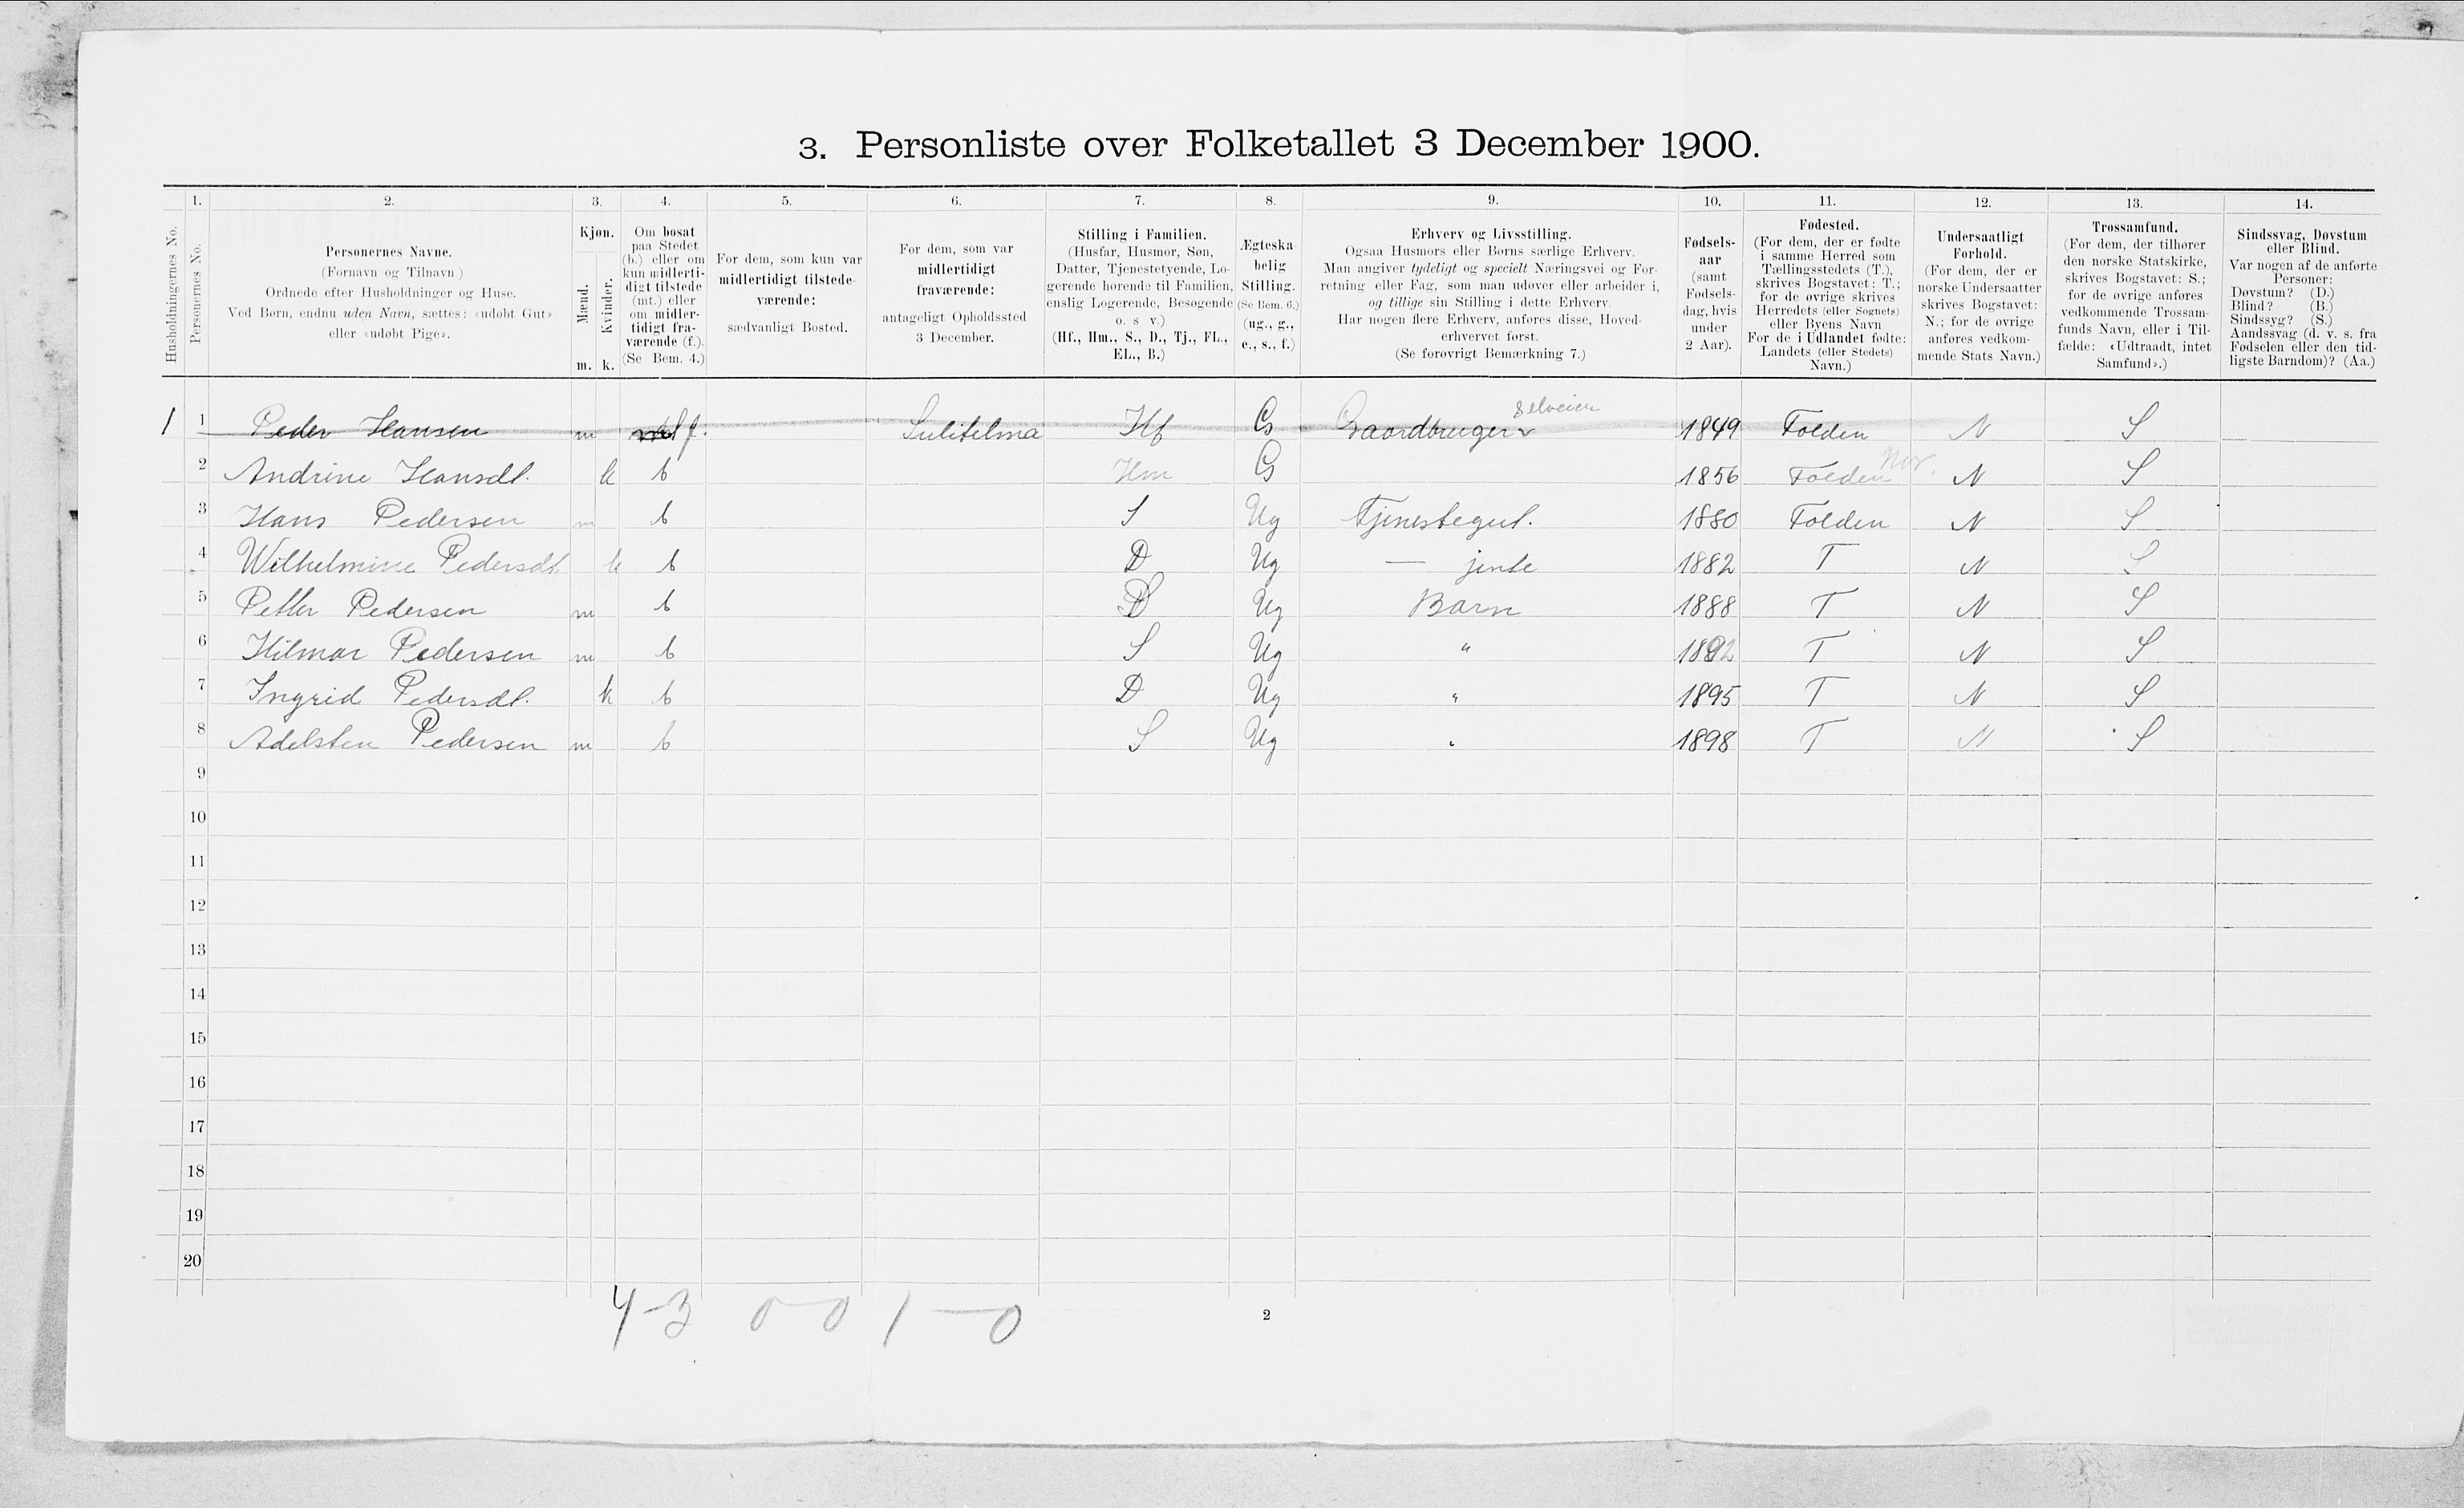 3. Personliste over Folketallet 3 December 1900.
Husholdningernes No.
1.
Personernes No.
2.
Personernes Navne.
(Fornavn og Tilnavn)
Ordnede efter Husholdninger og Huse.
Ved Børn, endnu uden Navn, sættes: «udøbt Gut»
eller «udøbt Pige».
3.
Kjøn.
Mænd.
Kvinder.
m. k.
4.
Om bosat
paa Stedet
(b.) eller om
kun midlerti-
digt tilstede
(mt.) eller
om midler-
tidigt fra-
værende (f.).
(Se Bem. 4.)
5.
For dem, som kun var
midlertidigt tilstede-
værende:
sædvanligt Bosted.
6.
For dem, som var
midlertidigt
fraværende:
antageligt Opholdssted
3 December.
7.
Stilling i Familien.
(Husfar, Husmor, Søn,
Datter, Tjenestetyende, Lo-
gerende hørende til Familien,
enslig Logerende, Besøgende
o. s v.)
(Hf., Hm., S., D., Tj., FL.,
EL., B.)
8.
Ægteska-
belig
Stilling.
(Se Bem. 6.)
(ug., g.,
e., s., f.)
9.
Erhverv og Livsstilling.
Ogsaa Husmors eller Børns særlige Erhverv.
Man angiver tydeligt og specielt Næringsvei og For-
retning eller Fag, som man udøver eller arbeider i,
og tillige sin Stilling i dette Erhverv.
Har nogen flere Erhverv, anføres disse, Hoved-
erhvervet først.
(Se forøvrigt Bemærkning 7.)
10.
Fødsels-
aar
(samt
Fødsels-
dag, hvis
under
2 Aar).
11.
Fødested.
(For dem, der er fødte
i samme Herred som
Tællingsstedets (T.),
skrives Bogstavet: T.;
for de øvrige skrives
Herredets (eller Sognets)
eller Byens Navn
For de i Udlandet fødte:
Landets (eller Stedets)
Navn.)
12.
Undersaatligt
Forhold.
(For dem, der er
norske Undersaatter
skrives Bogstavet:
N.; for de øvrige
anføres vedkom-
mende Stats Navn.)
13.
Trossamfund.
(For dem, der tilhører
den norske Statskirke,
skrives Bogstavet: S.;
for de øvrige anføres
vedkommende Trossam-
funds Navn, eller i Til-
fælde: «Udtraadt, intet
Samfund».)
14.
Sindssvag, Døvstum
eller Blind.
Var nogen af de anførte
Personer:
Døvstum? (D.)
Blind? (B.)
Sindssyg? (S.)
Aandssvag (d. v. s. fra
Fødselen eller den tid-
ligste Barndom)? (Aa.)
1 1 Peder Hansen m f. Sulitelma Hf G Gaardbruger selveier 1849 Folden N S
2 Andrine Hansdt. k b Hm G 1856 Folden Nor. N S
3 Hans Pedersen m b S Ug Tjenestegut. 1880 Folden N S
4 Wilhelmine Pedersdt k b D Ug — jente 1882 T N S
5 Petter Pedersen m b S Ug Barn 1888 T N S
6 Hilmar Pedersen m b S Ug " 1892 T N S
7 Ingrid Pedersdt. k b D Ug " 1895 T N S
8 Adelsten Pedersen m b S Ug " 1898 T N S
9
10
11
12
13
14
15
16
17
18
19
20
4-3 0-0 1-0
2